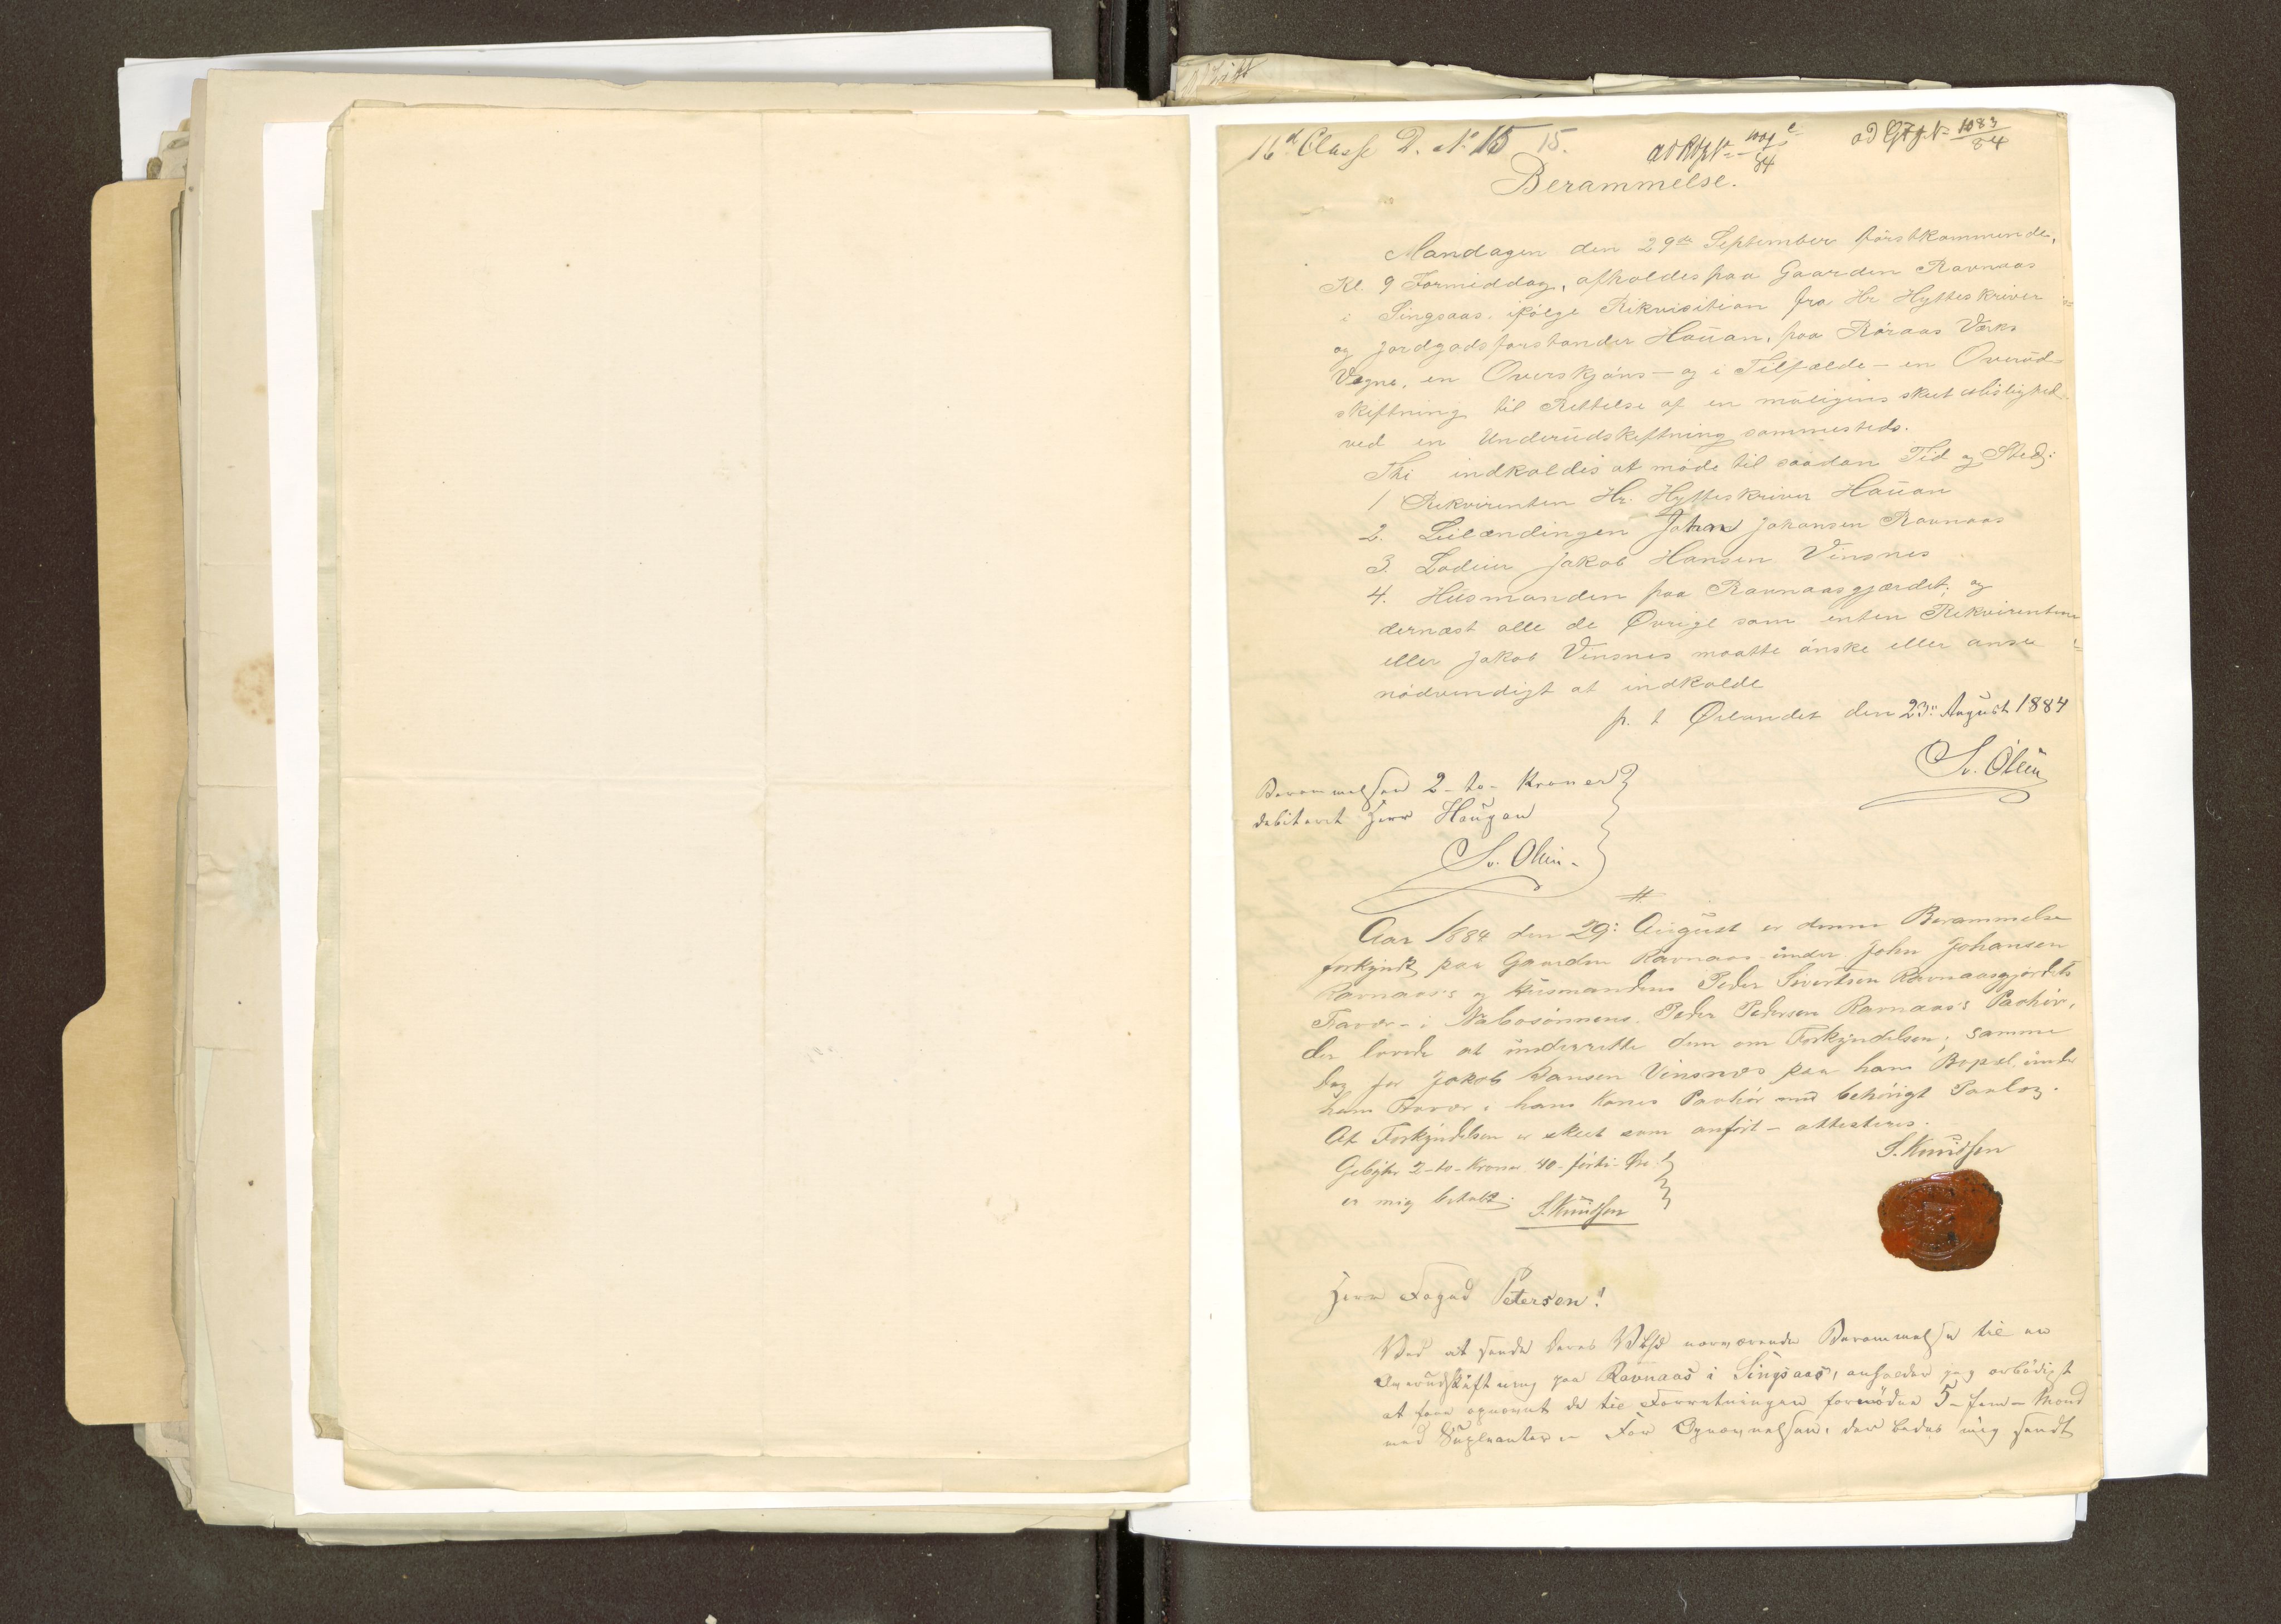 16d Classe D. No 15 15.
ad Gfgr No 1083/84
Berammelse.
Mandagen den 29de September förstkommende,
Kl. 9 Formiddag, afholdes paa Gaarden Ravnaas
i Singsaas, ifölge Rikvisition fra Hr Hytteskriver
og Jordgodsforstander Hauan, paa Röraas Værks
Vegne, en Overskjöns- og i Tilfælde - en Overud-
skiftning til Rettelse af en muligens skeet ubilighed
ved en Underudskiftning sammesteds.
Thi indkaldes at möde til saadan Tid og Sted:
1 Rekvirenten Hr. Hytteskriver Hauan
2. Leilændingen John Johansen Ravnaas
3. Lodeier Jakob Hansen Vinsnes
4. Husmanden paa Ravnaasgjærdet; og
dernæst alle de Øvrige som enten Rekvirenten
eller Jakob Vinsnes maatte önske eller anse
nödvendigt at indkalde
p. t Ørlandet den 23 August 1884
Sv. Olein
Berammelsen 2 - to - Kroner
debiteret Herr Haugan
Sv. Olein.
Aar 1884 den 29: August er denne Berammelse
forkyndt paa Gaarden Ravnaas under John Johansen
Ravnaas's og Husmanden Peder Sivertsen Ravnaasgjördets
Fravær - i Nabosönnens Peder Pedersen Ravnaas's Paahör,
der lovede at underrette dem om Forkyndelsen; samme
Dag for Jakob Hansen Vinsnes paa hans Bopæl, under
hans Fravær i hans Kones Paahör med behörigt Paalæg.
At Forkyndelsen er skeet som anfört - attesteres.
S. Knudsen
Gebyhr 2 - to - Kroner 40 - förti - Öre
er mig betalt.
S. Knudsen
Herr Foged Petersen!
Ved at sende Deres nærværende Berammelse til en
Overudskiftning paa Ravnaas i Singsaas, anholder jeg ærbödigst
at faae opnævnt de til Forretningen fornödne 5 - fem - Mænd
med Suppleanter. - Opnævnelsen, der bedes mig sendt